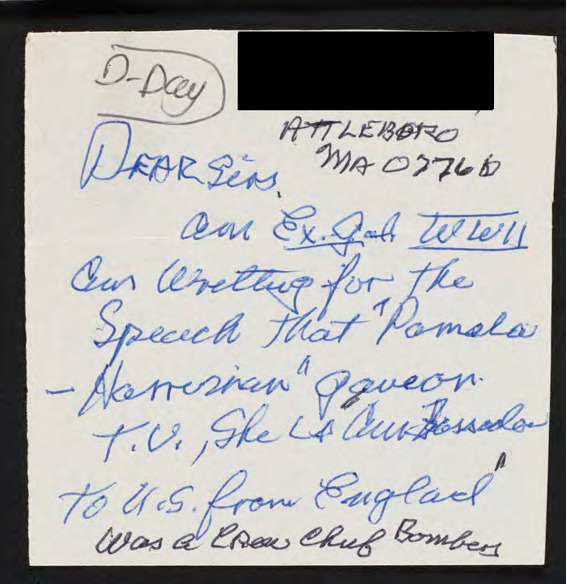 D-Day
ATTLEBORO
MA 02760
DEAR Sirs,
am Ex. G.I. WWII
am Writting for the
Speech that "Pamela
- Harriman" gave on
T.V., She is Ambassador
to U.S. from England"
Was a Crew Chief Bombers